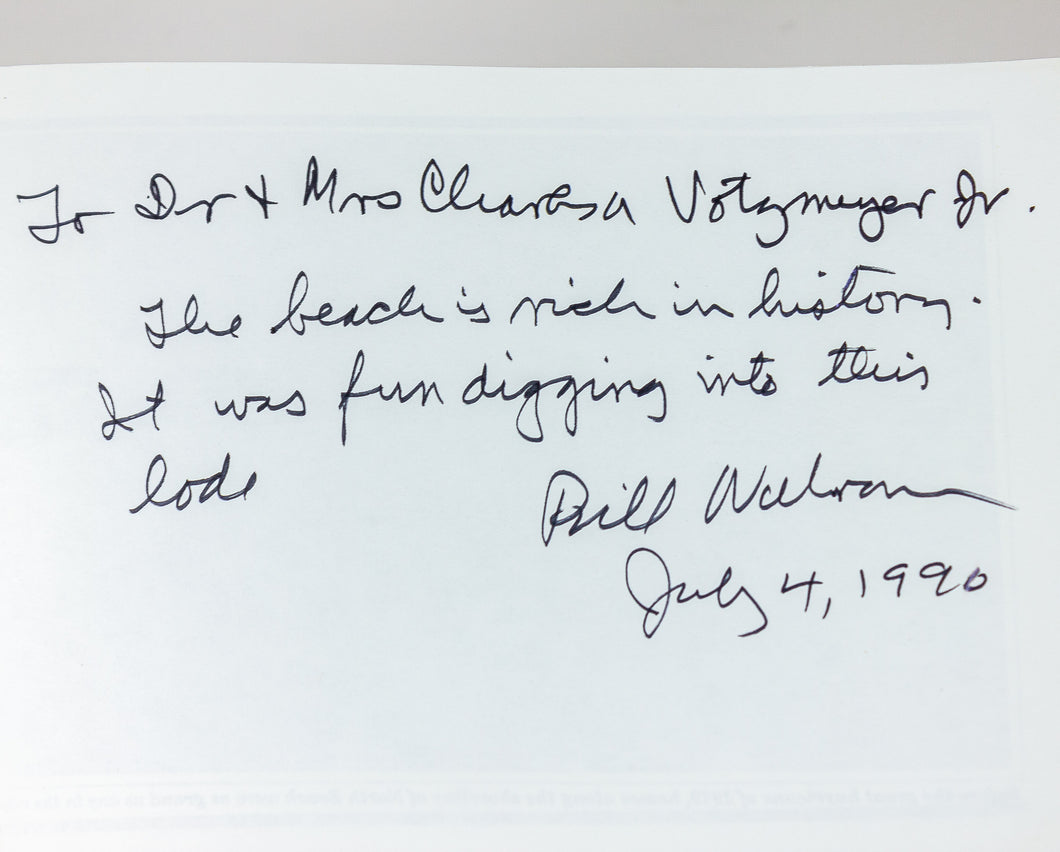 To Dr + Mrs Charles A Votzmeyer Jr.
The beach is rich in history.
It was fun digging into this
lode
Bill Walraven
July 4, 1990